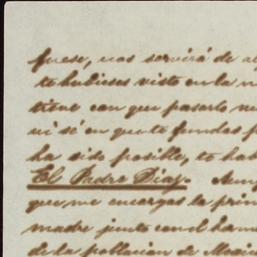 fuese, nos servirá de a
te hubieses visto en la n
tiene con que pasarlo m
ni sé en que te fundas p
ha sido posible, te hab
El Padre Diaz. Aunq
que me encargas la prin
madre junto con el herma
de la poblacion de Mexic